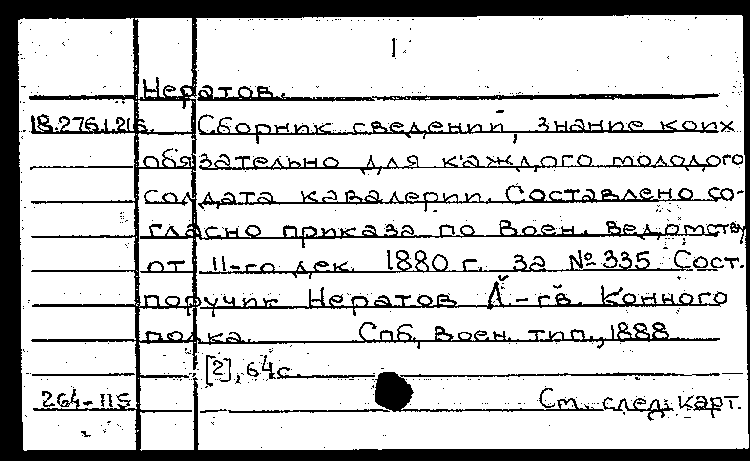 1
Нератов.
18.276.1.216. Сборник сведений, знание коих
обязательно для каждого молодого
солдата кавалерии. Составлено со-
гласно приказа по Воен. ведомству
от 11-го дек. 1880 г. за № 335 Сост.
поручик Нератов Л.-гв. Конного
полка. Спб, Воен. тип., 1888
[2], 64 с.
264-115 Ст. след. карт.